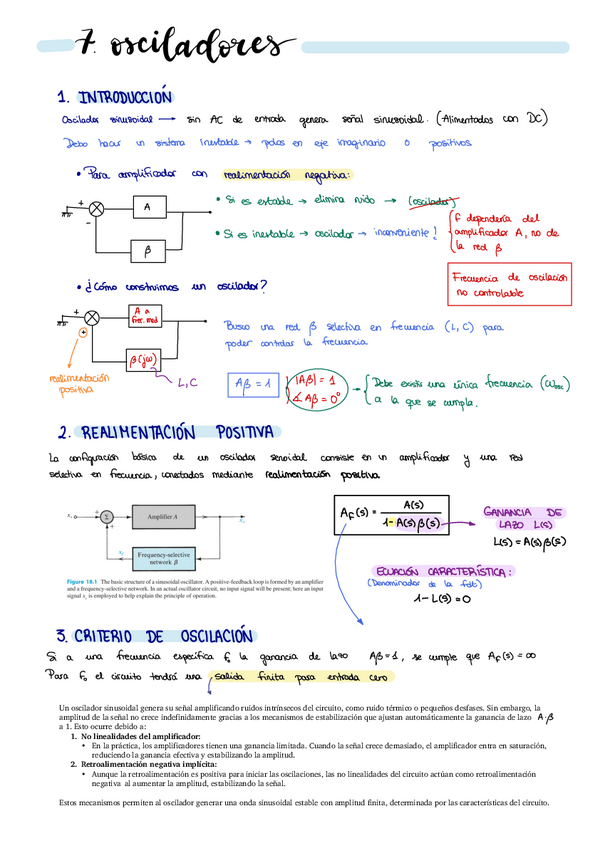 7. osciladores
1. INTRODUCCIÓN
Oscilador sinusoidal → sin AC de entrada genera señal sinusoidal. (Alimentados con DC)
Debo hacer un sistema inestable → polos en eje imaginario o positivos
• Para amplificador con realimentación negativa:
+
-
A
β
• Si es estable → elimina ruido → (oscilador)
• Si es inestable → oscilador → inconveniente!
f dependería del
amplificador A, no de
la red β
Frecuencia de oscilación
no controlable
• ¿Cómo construimos un oscilador?
+
+
A a
frec. med
β(jω)
L, C
realimentación
positiva
Busco una red β selectiva en frecuencia (L, C) para
poder controlar la frecuencia.
Aβ = 1
|Aβ| = 1
∡ Aβ = 0°
→ Debe existir una única frecuencia (ωosc)
a la que se cumpla.
2. REALIMENTACIÓN POSITIVA
La configuración básica de un oscilador senoidal consiste en un amplificador y una red
selectiva en frecuencia, conectados mediante realimentación positiva.
xs
+
Σ
+
Amplifier A
xo
xf
Frequency-selective
network β
Figure 18.1 The basic structure of a sinusoidal oscillator. A positive-feedback loop is formed by an amplifier
and a frequency-selective network. In an actual oscillator circuit, no input signal will be present; here an input
signal xs is employed to help explain the principle of operation.
Af(s) = A(s) / 1 - A(s)β(s)
GANANCIA DE
LAZO L(s)
L(s) = A(s)β(s)
ECUACIÓN CARACTERÍSTICA:
(Denominador de la fdt)
1 - L(s) = 0
3. CRITERIO DE OSCILACIÓN
Si a una frecuencia específica f0 la ganancia de lazo Aβ = 1, se cumple que Af(s) = ∞
Para f0 el circuito tendrá una salida finita para entrada cero
Un oscilador sinusoidal genera su señal amplificando ruidos intrínsecos del circuito, como ruido térmico o pequeños desfases. Sin embargo, la
amplitud de la señal no crece indefinidamente gracias a los mecanismos de estabilización que ajustan automáticamente la ganancia de lazo A·β
a 1. Esto ocurre debido a:
1. No linealidades del amplificador:
• En la práctica, los amplificadores tienen una ganancia limitada. Cuando la señal crece demasiado, el amplificador entra en saturación,
reduciendo la ganancia efectiva y estabilizando la amplitud.
2. Retroalimentación negativa implícita:
• Aunque la retroalimentación es positiva para iniciar las oscilaciones, las no linealidades del circuito actúan como retroalimentación
negativa al aumentar la amplitud, estabilizando la señal.
Estos mecanismos permiten al oscilador generar una onda sinusoidal estable con amplitud finita, determinada por las características del circuito.